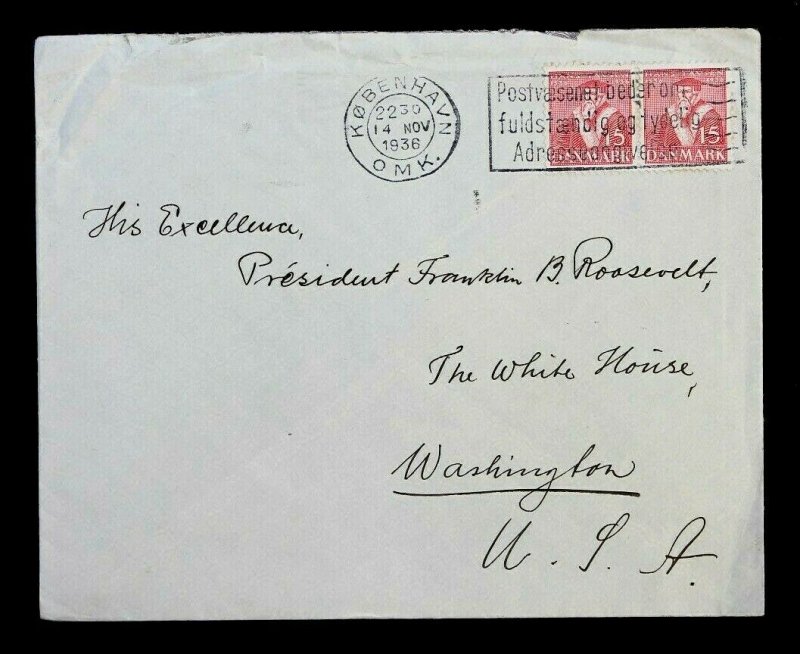 KØBENHAVN
2230
14 NOV
1936
OMK.
Postvæsenet beder om
fuldstændig og tydelig
Adresseangivelse
15 15
DANMARK DANMARK
His Excellence,
Président Franklin B. Roosevelt,
The White House,
Washington
U. S. A.